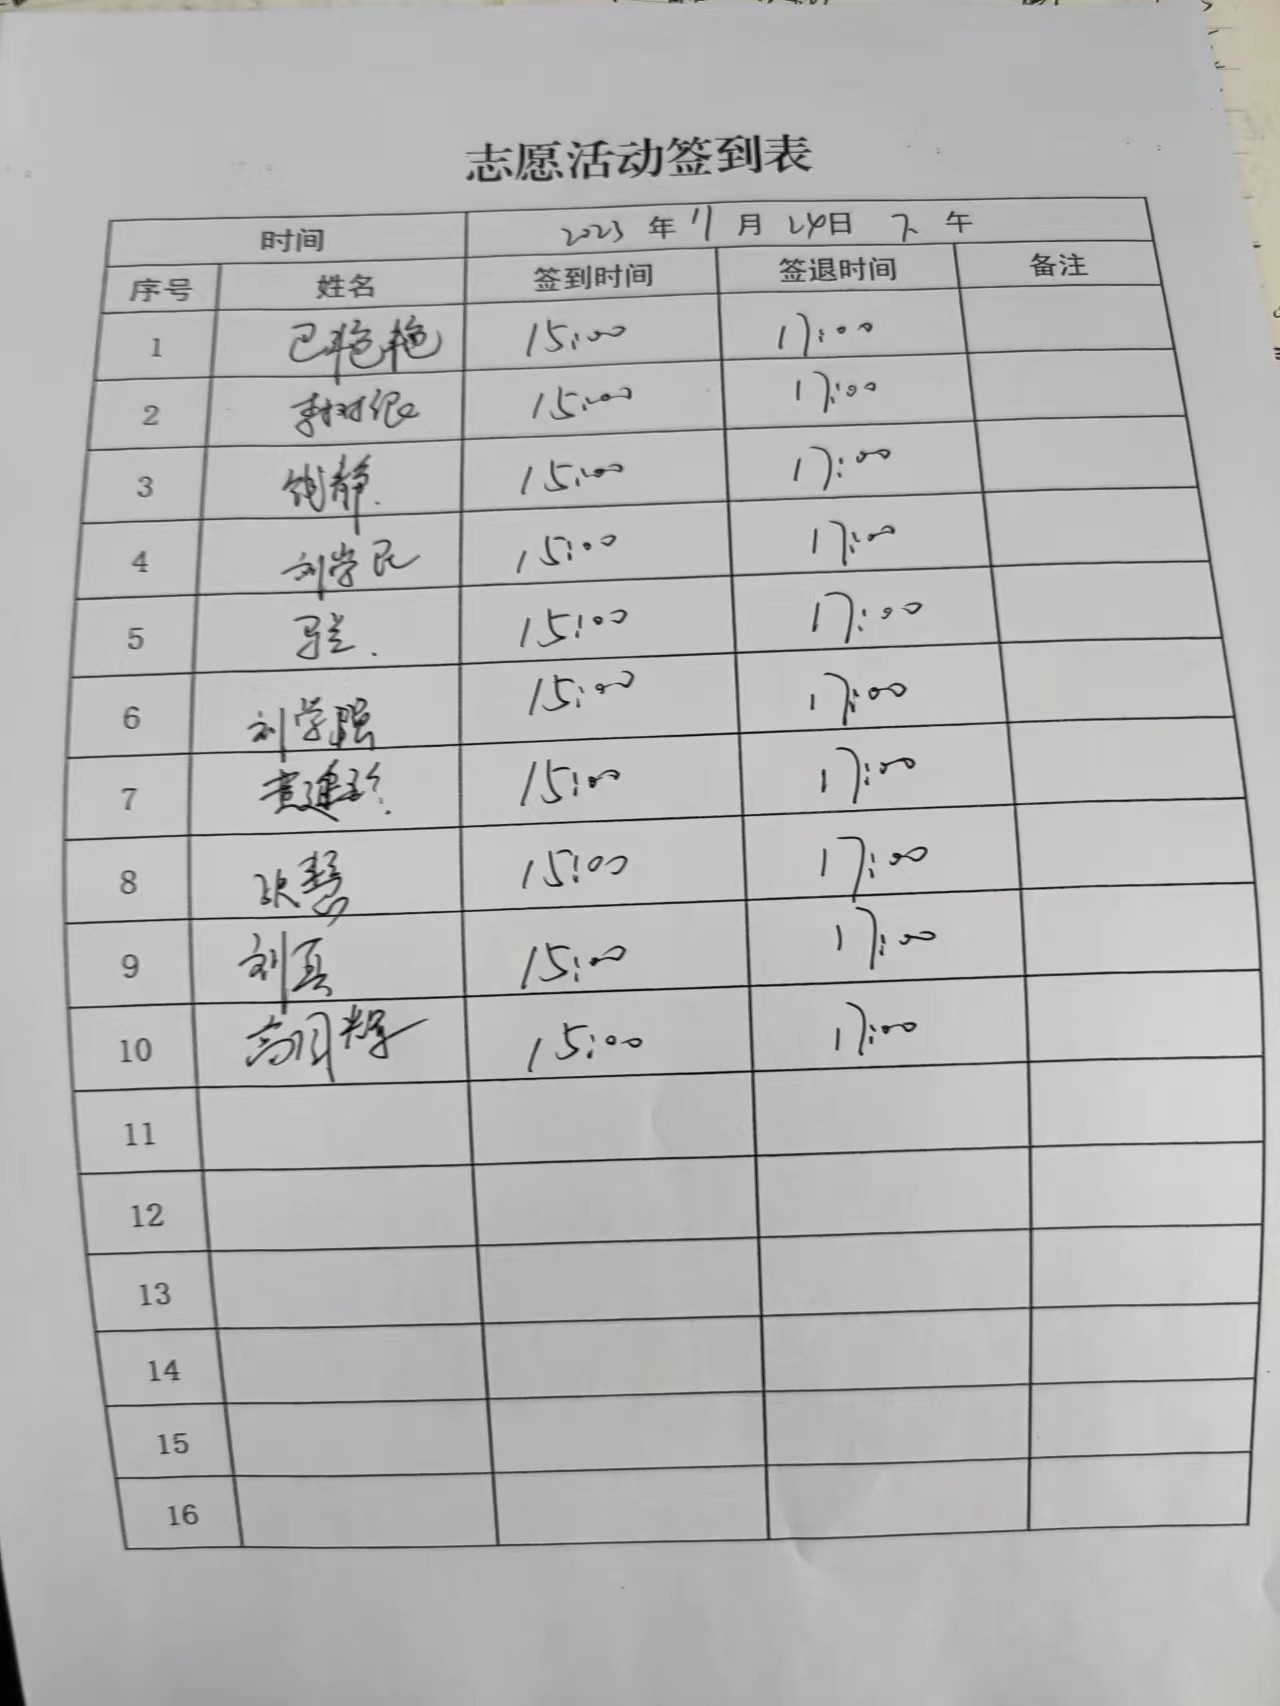 志愿活动签到表
时间 2023 年 11 月 24日 下 午
序号 姓名 签到时间 签退时间 备注
1 巴艳艳 15:00 17:00
2 李树银 15:00 17:00
3 鲍静. 15:00 17:00
4 刘学民 15:00 17:00
5 马兰. 15:00 17:00
6 刘学强 15:00 17:00
7 15:00 17:00
8 15:00 17:00
9 刘真 15:00 17:00
10 15:00 17:00
11
12
13
14
15
16